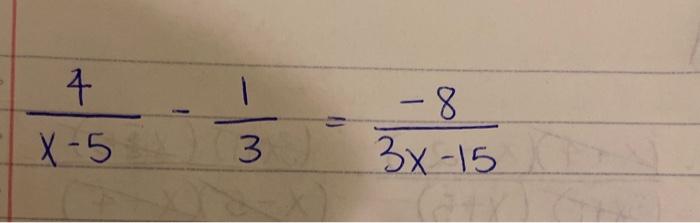 4/(x-5) - 1/3 = -8/(3x-15)